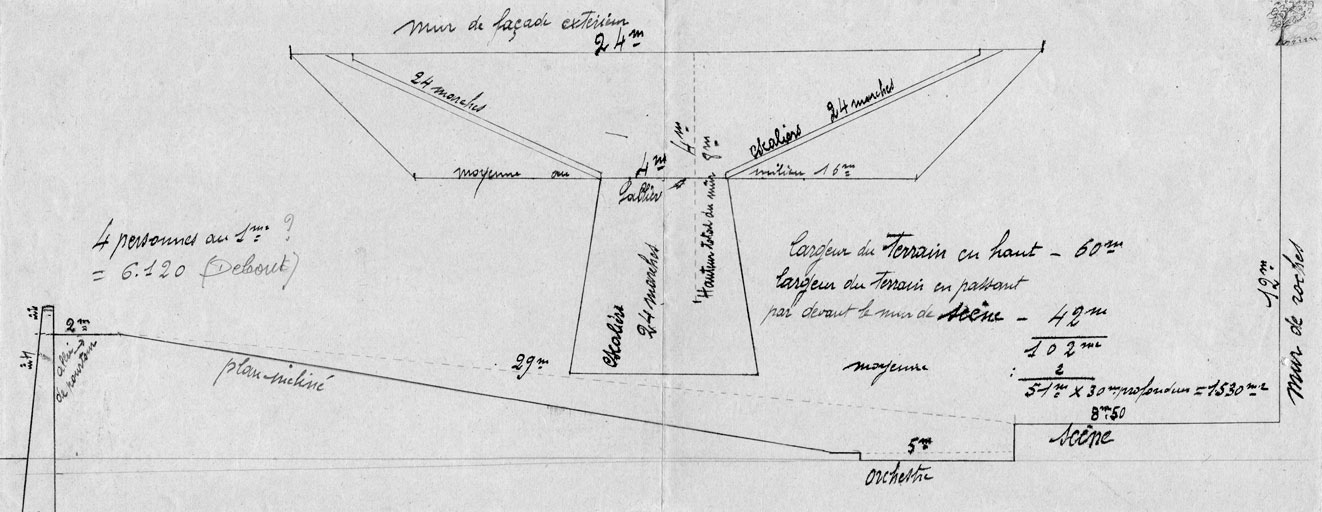 Mur de façade extérieur
24 m
24 marches
escaliers 24 marches
4 m
8 m
4 m
moyenne au
milieu 16 m
Pallier
Hauteur total du mur
4 personnes au 1 m² ?
= 6.120 (Debout)
Escaliers
24 marches
largeur du terrain en haut - 60 m
largeur du terrain en passant
par devant le mur de scêne - 42 m
102 m
moyenne : 2
51 m x 30 m profondeur = 1530 m²
12 m
Mur de roches
2 m
4 m
de pourtour
plan-incliné
29 m
5 m
Orchestre
8 m,50
Scêne